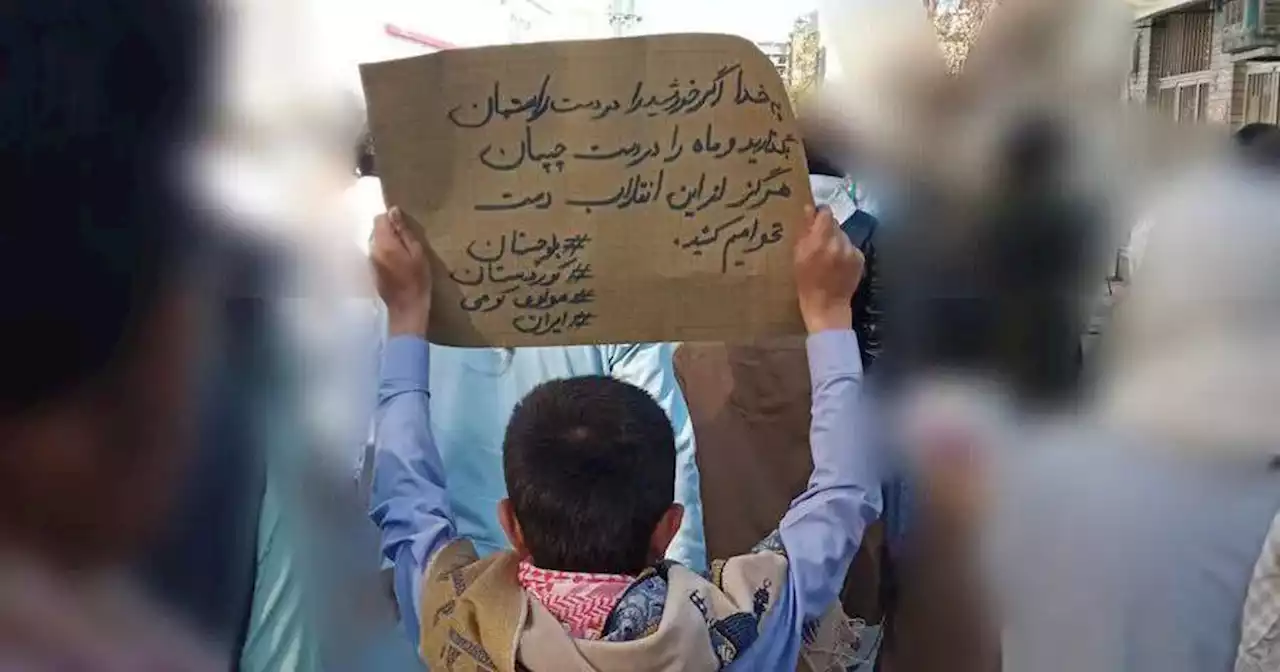 به خدا اگر خورشید را در دست راستمان
بگذارید و ماه را در دست چپمان
هرگز از این انقلاب دست
نخواهیم کشید.
#بلوچستان
#کوردستان
#مولوی کوهی
#ایران